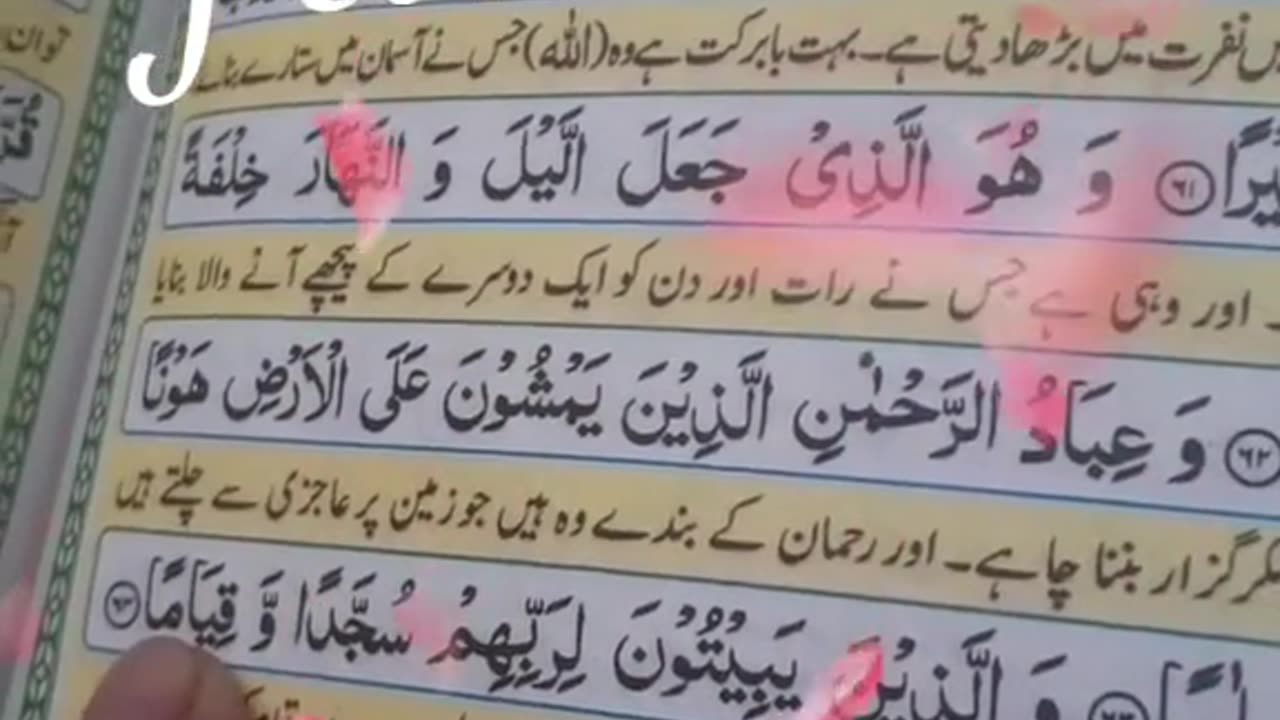 نفرت میں بڑھا دیتی ہے۔ بہت بابرکت ہے وہ (اللہ) جس نے آسمان میں ستارے بنائے
۝۶۱ وَ هُوَ الَّذِیْ جَعَلَ الَّیْلَ وَ النَّهَارَ خِلْفَةً
۔ اور وہی ہے جس نے رات اور دن کو ایک دوسرے کے پیچھے آنے والا بنایا
۝۶۲ وَ عِبَادُ الرَّحْمٰنِ الَّذِیْنَ یَمْشُوْنَ عَلَی الْاَرْضِ هَوْنًا
بننا چاہے۔ اور رحمان کے بندے وہ ہیں جو زمین پر عاجزی سے چلتے ہیں
وَ الَّذِیْنَ یَبِیْتُوْنَ لِرَبِّهِمْ سُجَّدًا وَّ قِیَامًا ۝۶۴